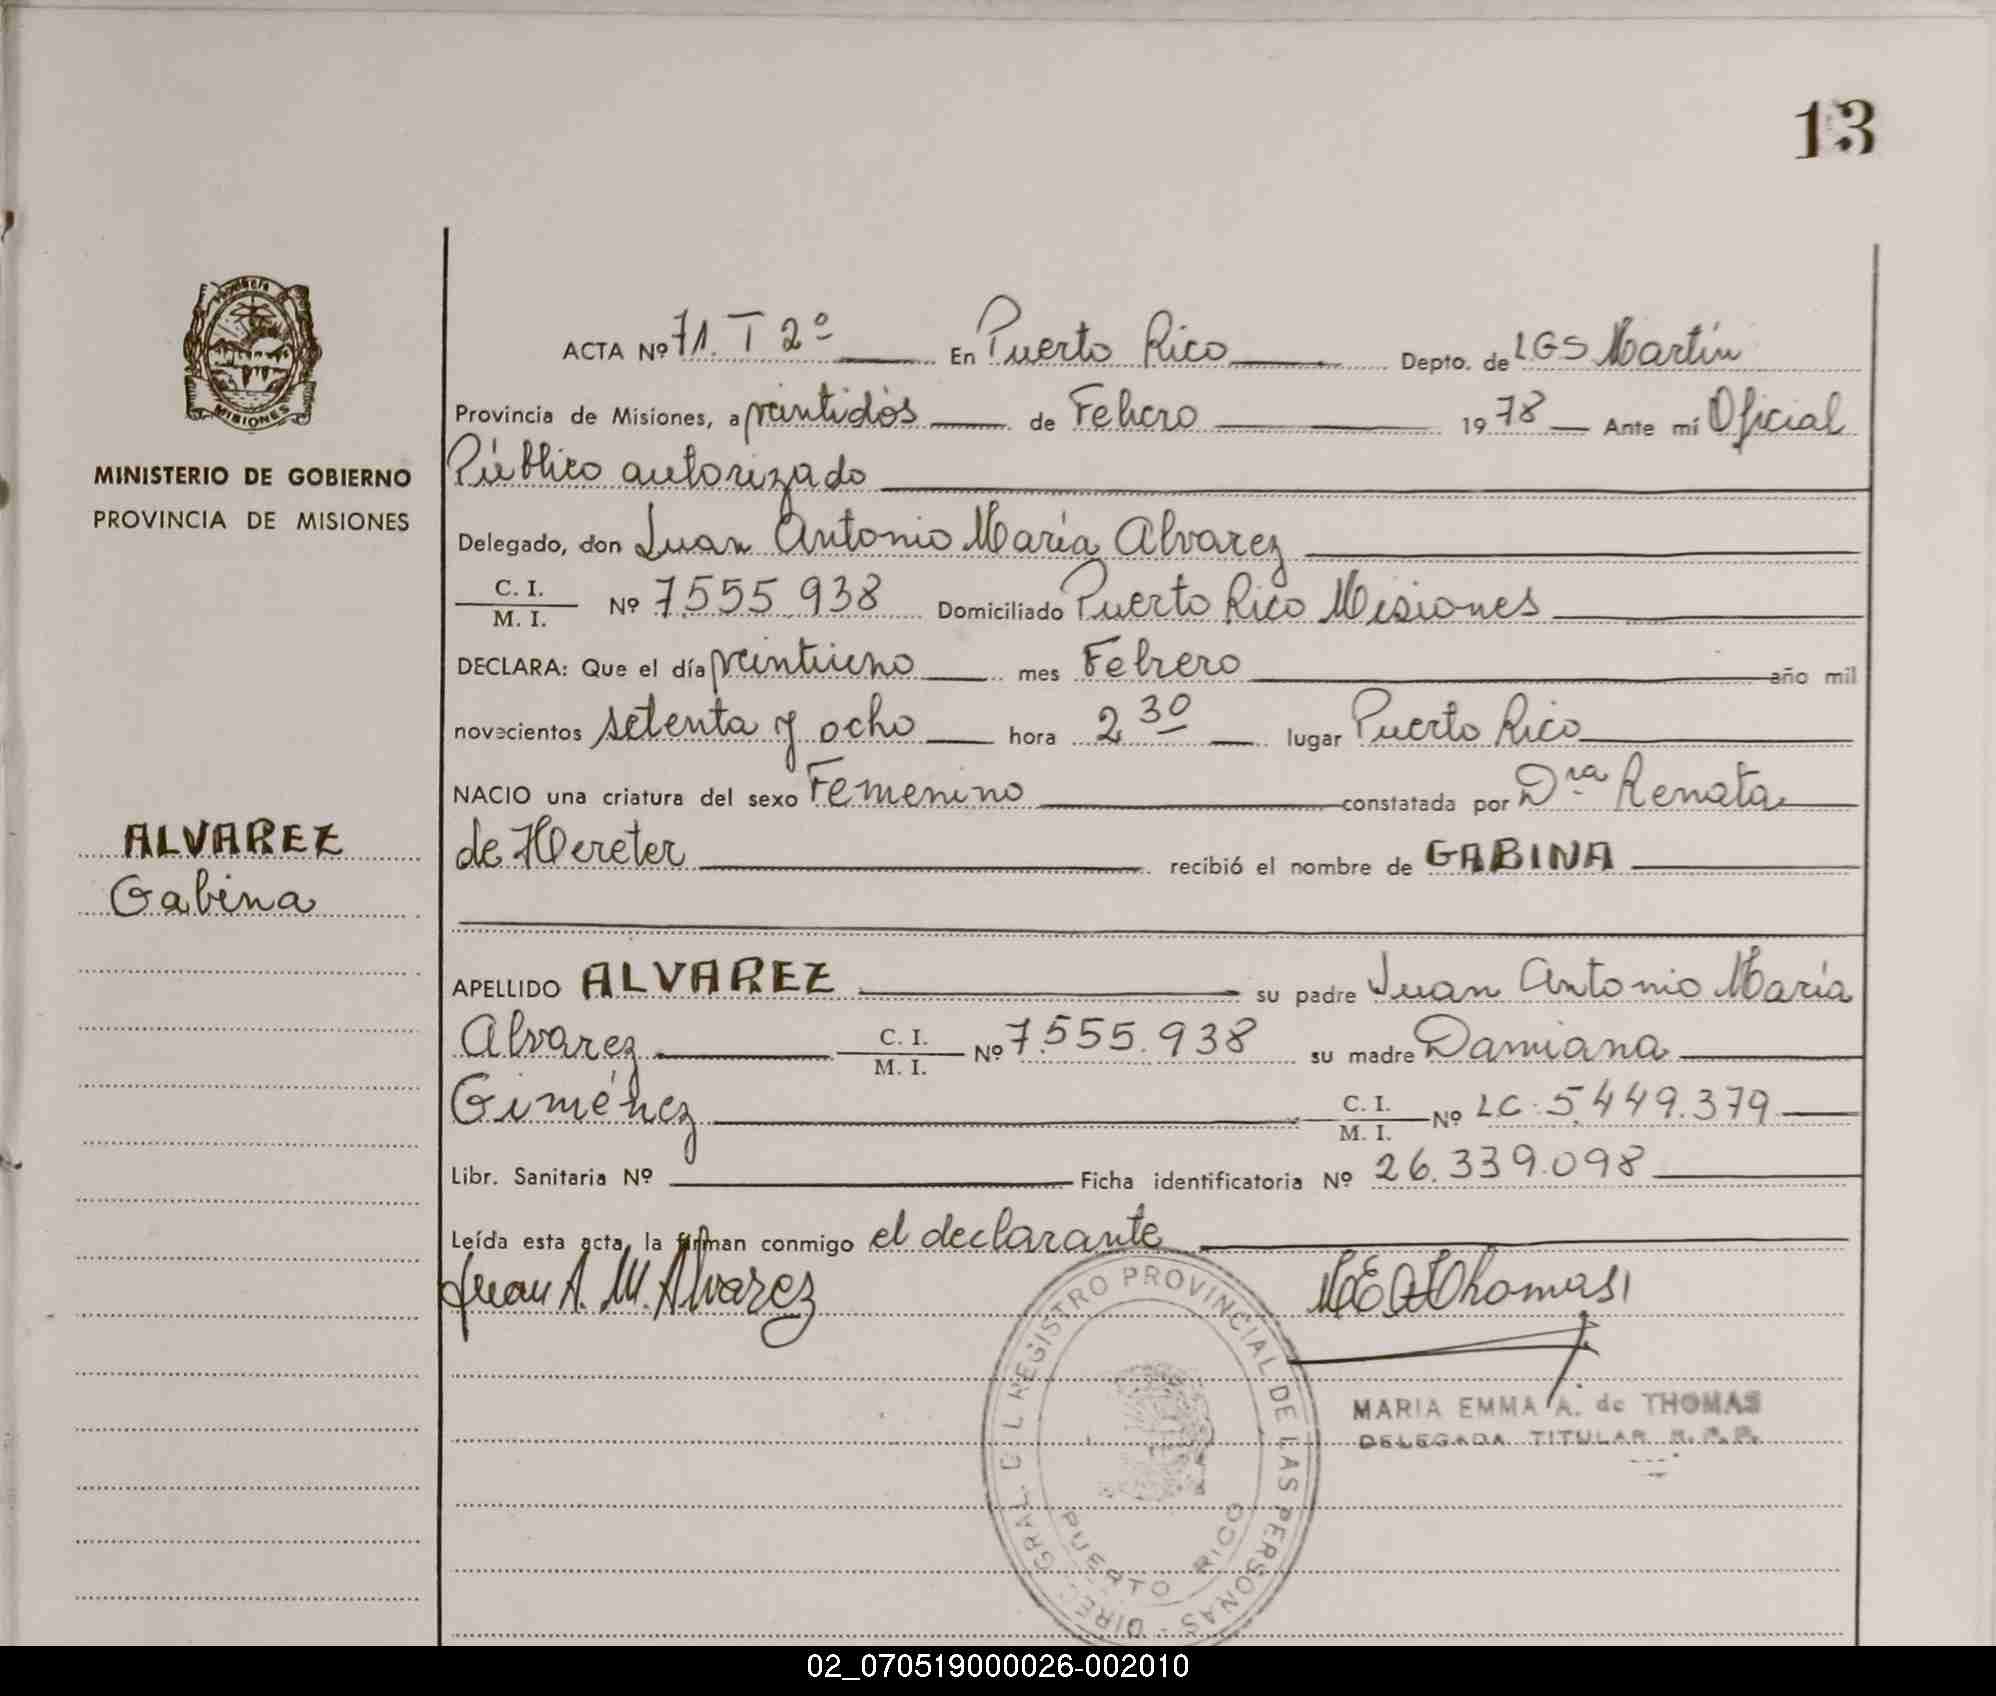 13
Provincia
MISIONES
MINISTERIO DE GOBIERNO
PROVINCIA DE MISIONES
ALVAREZ
Gabina
ACTA Nº 71. T 2º En Puerto Rico Depto. de LGS Martín
Provincia de Misiones, a veintidós de Febrero 1978 Ante mí Oficial
Público autorizado
Delegado, don Juan Antonio María Alvarez
C. I.
M. I. Nº 7.555.938 Domiciliado Puerto Rico Misiones
DECLARA: Que el día veintiuno mes Febrero año mil
novecientos setenta y ocho hora 2 30 lugar Puerto Rico
NACIO una criatura del sexo Femenino constatada por Dra Renata
de Hereter recibió el nombre de GABINA
APELLIDO ALVAREZ su padre Juan Antonio María
Alvarez C. I. M. I. Nº 7.555.938 su madre Damiana
Giménez C. I. M. I. Nº LC. 5.449.379
Libr. Sanitaria Nº Ficha identificatoria Nº 26.339.098
Leída esta acta, la firman conmigo el declarante
Juan A. M. Alvarez
MEA Thomas
MARIA EMMA A. de THOMAS
DELEGADA TITULAR R. P. P.
DIREC. GRAL. DEL REGISTRO PROVINCIAL DE LAS PERSONAS -
PUERTO RICO
02_070519000026-002010